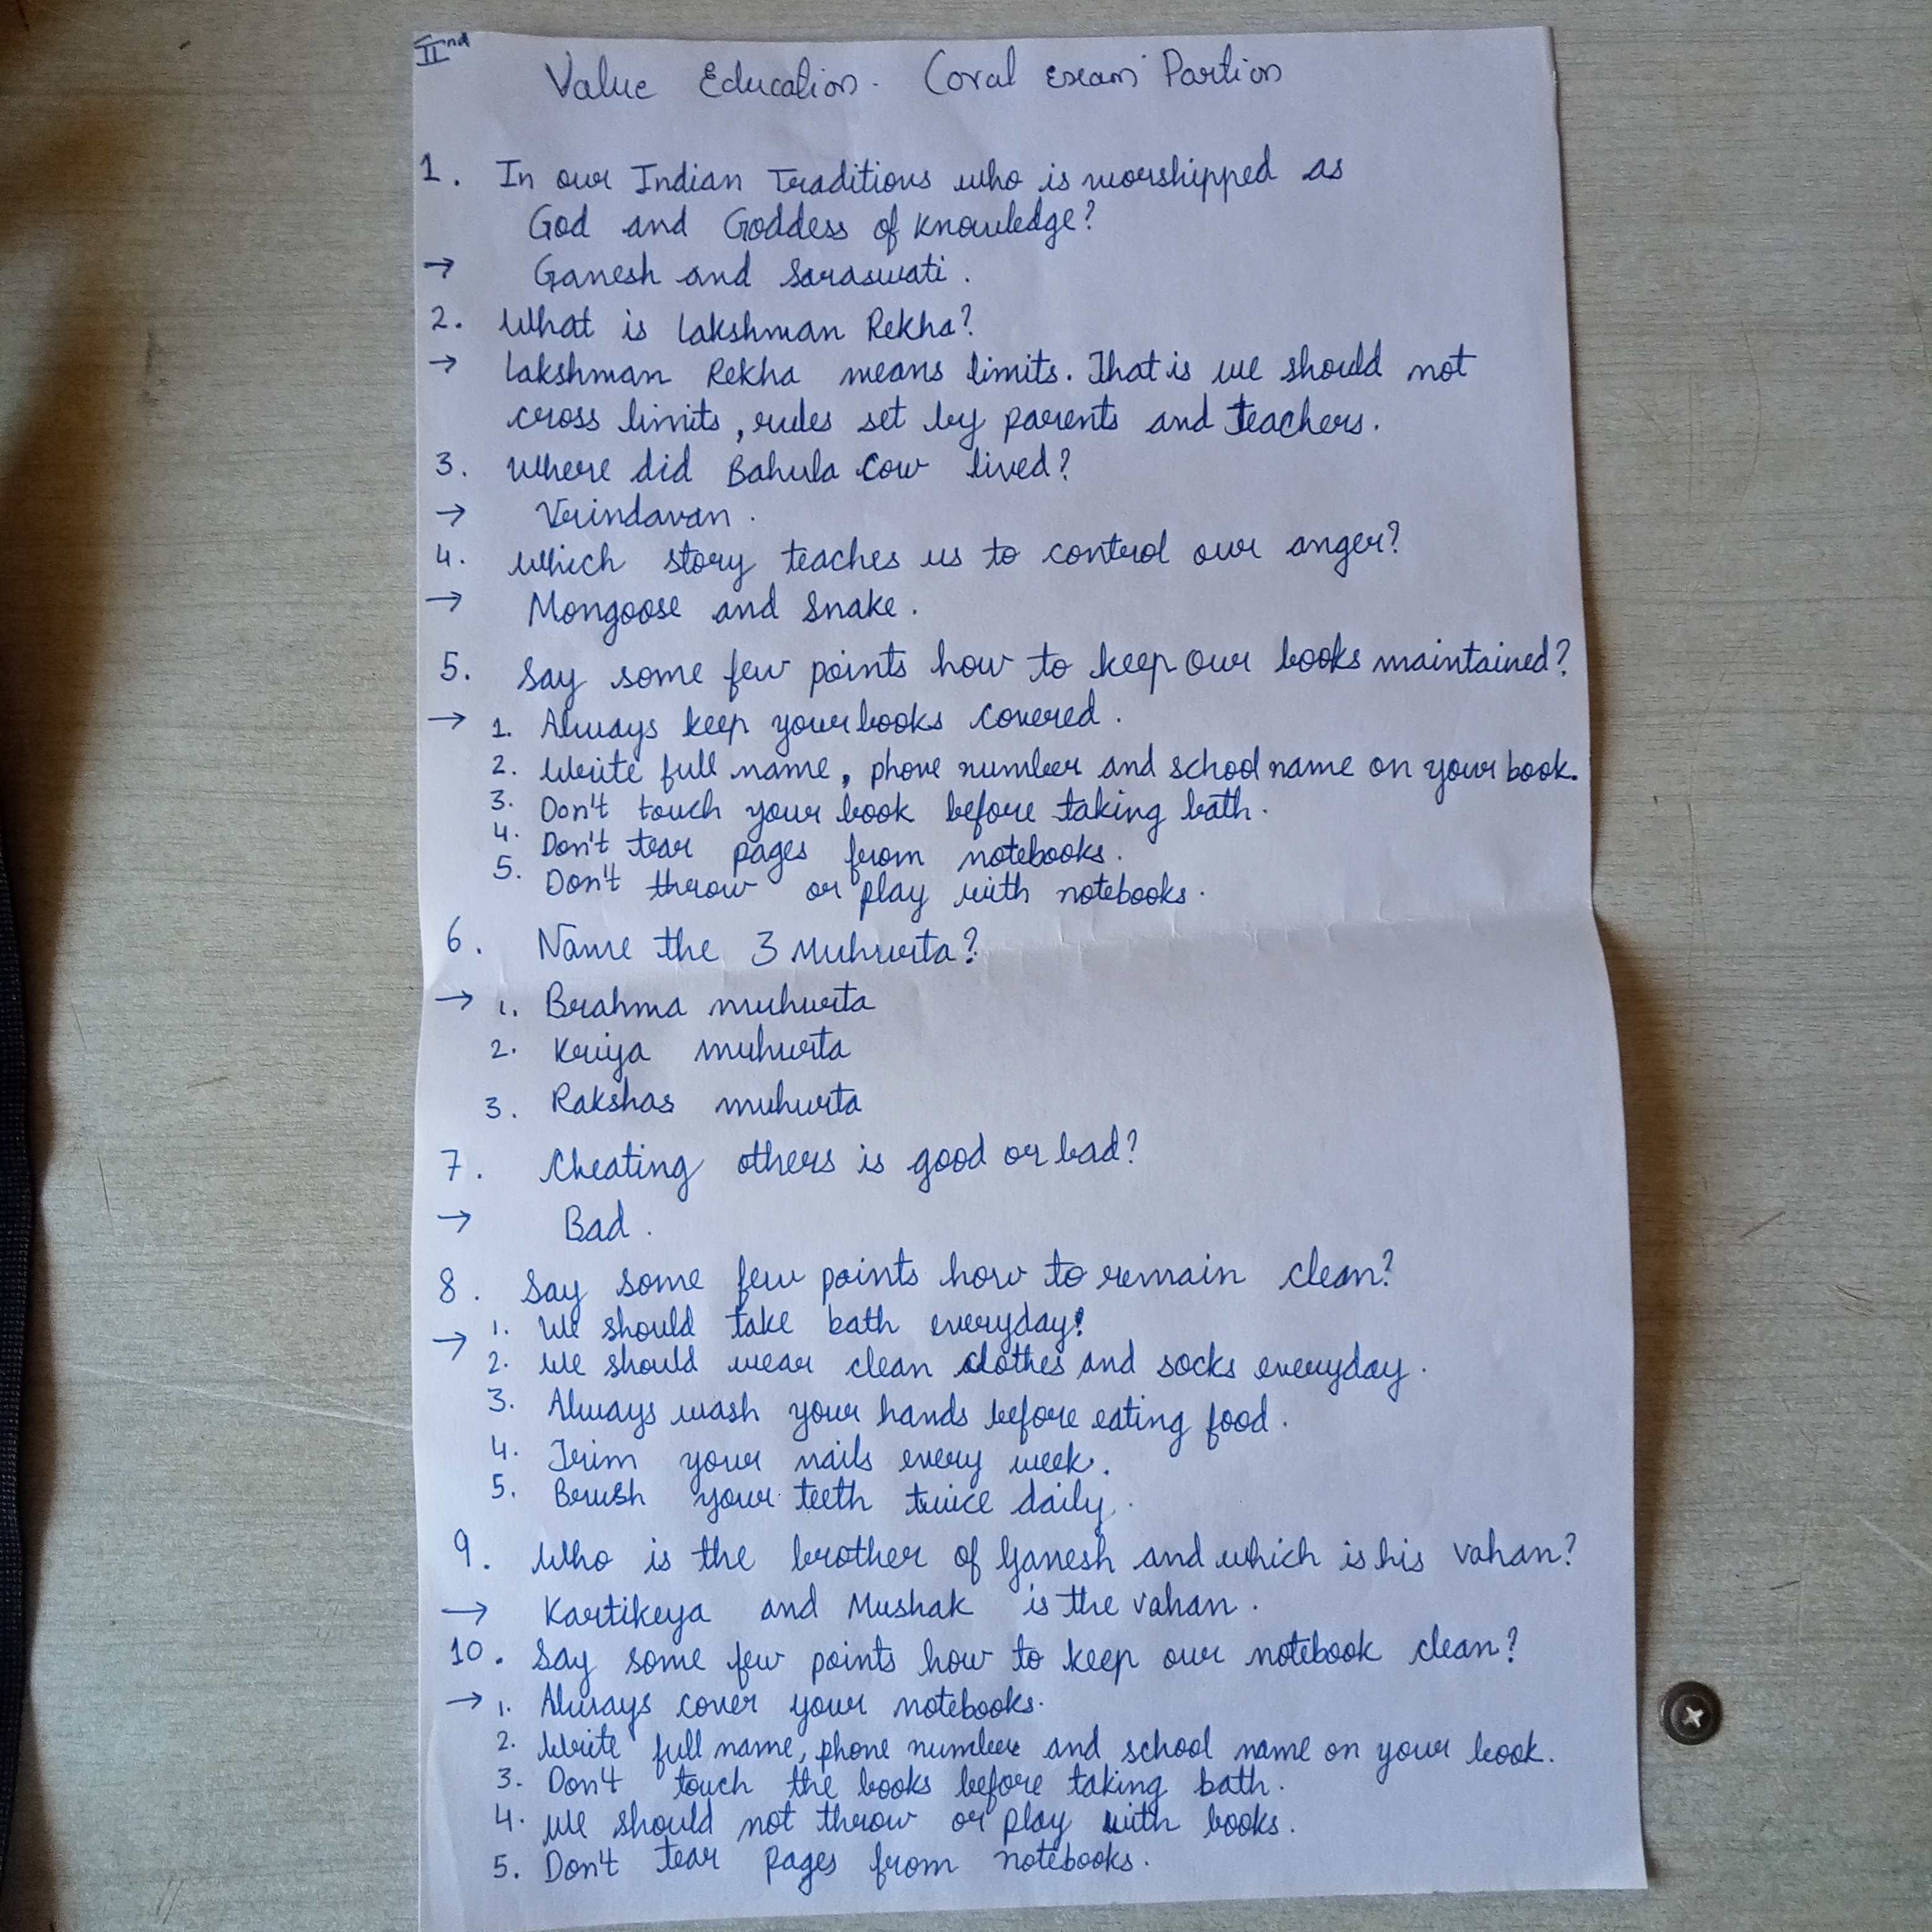 IInd
Value Education. (oral exam) Partion
1. In our Indian Traditions who is worshipped as
God and Goddess of knowledge?
→ Ganesh and Saraswati.
2. What is Lakshman Rekha?
→ Lakshman Rekha means limits. That is we should not
cross limits, rules set by parents and teachers.
3. Where did Bahula Cow lived?
→ Vrindavan.
4. Which story teaches us to control our anger?
→ Mongoose and Snake.
5. Say some few points how to keep our books maintained?
→ 1. Always keep your books covered.
2. Write full name, phone number and school name on your book.
3. Don't touch your book before taking bath.
4. Don't tear pages from notebooks.
5. Don't throw or play with notebooks.
6. Name the 3 Muhurta?
→ 1. Brahma muhurta
2. Kriya muhurta
3. Rakshas muhurta
7. Cheating others is good or bad?
→ Bad.
8. Say some few points how to remain clean?
→ 1. We should take bath everyday.
2. We should wear clean clothes and socks everyday.
3. Always wash your hands before eating food.
4. Trim your nails every week.
5. Brush your teeth twice daily.
9. Who is the brother of Ganesh and which is his vahan?
→ Kartikeya and Mushak is the vahan.
10. Say some few points how to keep our notebook clean?
→ 1. Always cover your notebooks.
2. Write full name, phone number and school name on your book.
3. Don't touch the books before taking bath.
4. We should not throw or play with books.
5. Don't tear pages from notebooks.